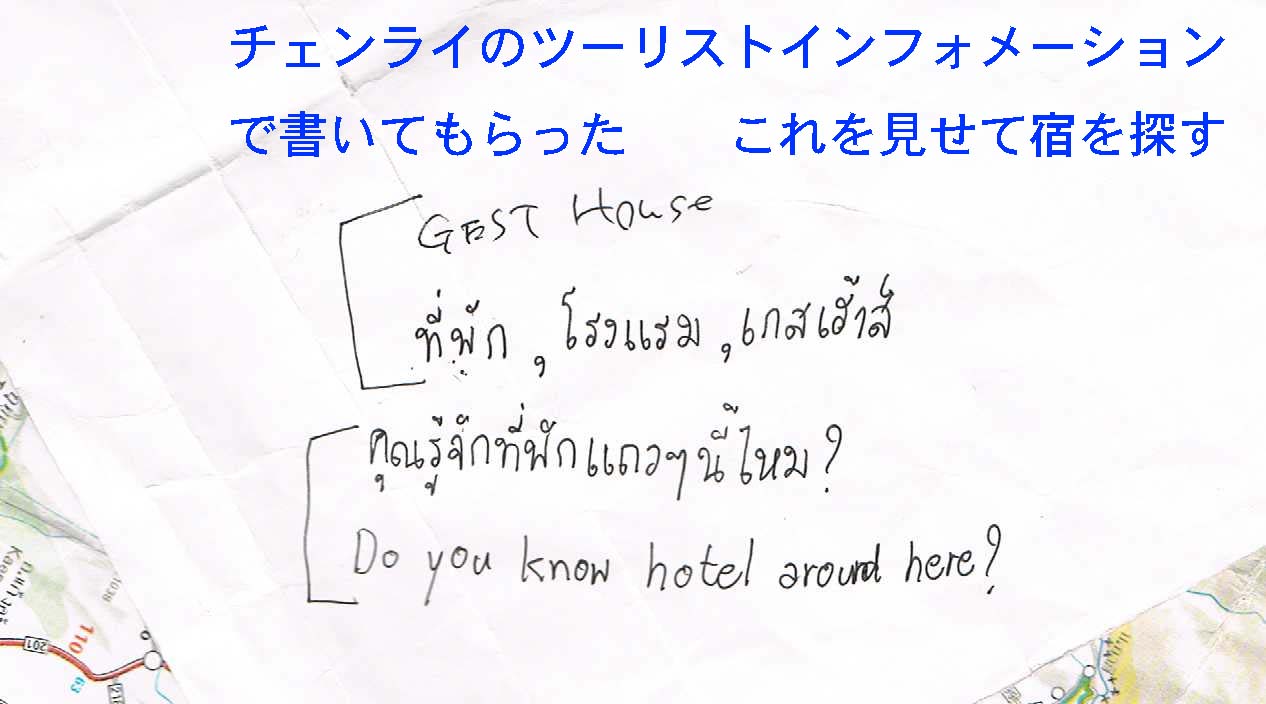 チェンライのツーリストインフォメーション
で書いてもらった　これを見せて宿を探す
GEST House
ที่พัก , โรงแรม , เกสเฮ้าส์
คุณรู้จักที่พักแถวๆนี้ไหม?
Do you know hotel around here?
201
110
63
1038